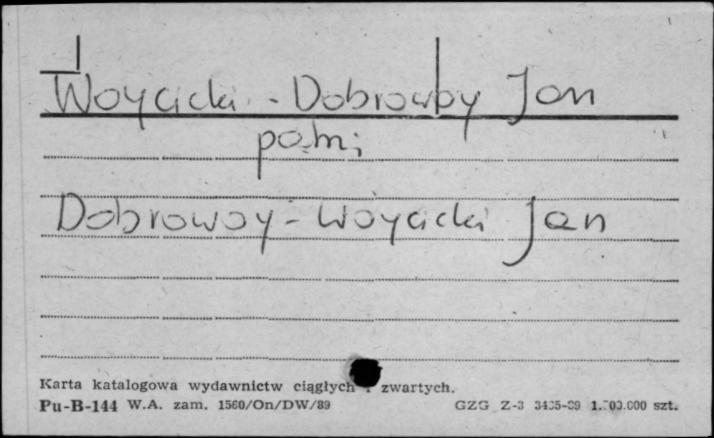 Woycicki - Dobrowoy Jan
patrz
Dobrowoy - Woycicki Jan
Karta katalogowa wydawnictw ciągłych i zwartych.
Pu-B-144 W.A. zam. 1560/On/DW/89 GZG Z-3 3435-89 szt.